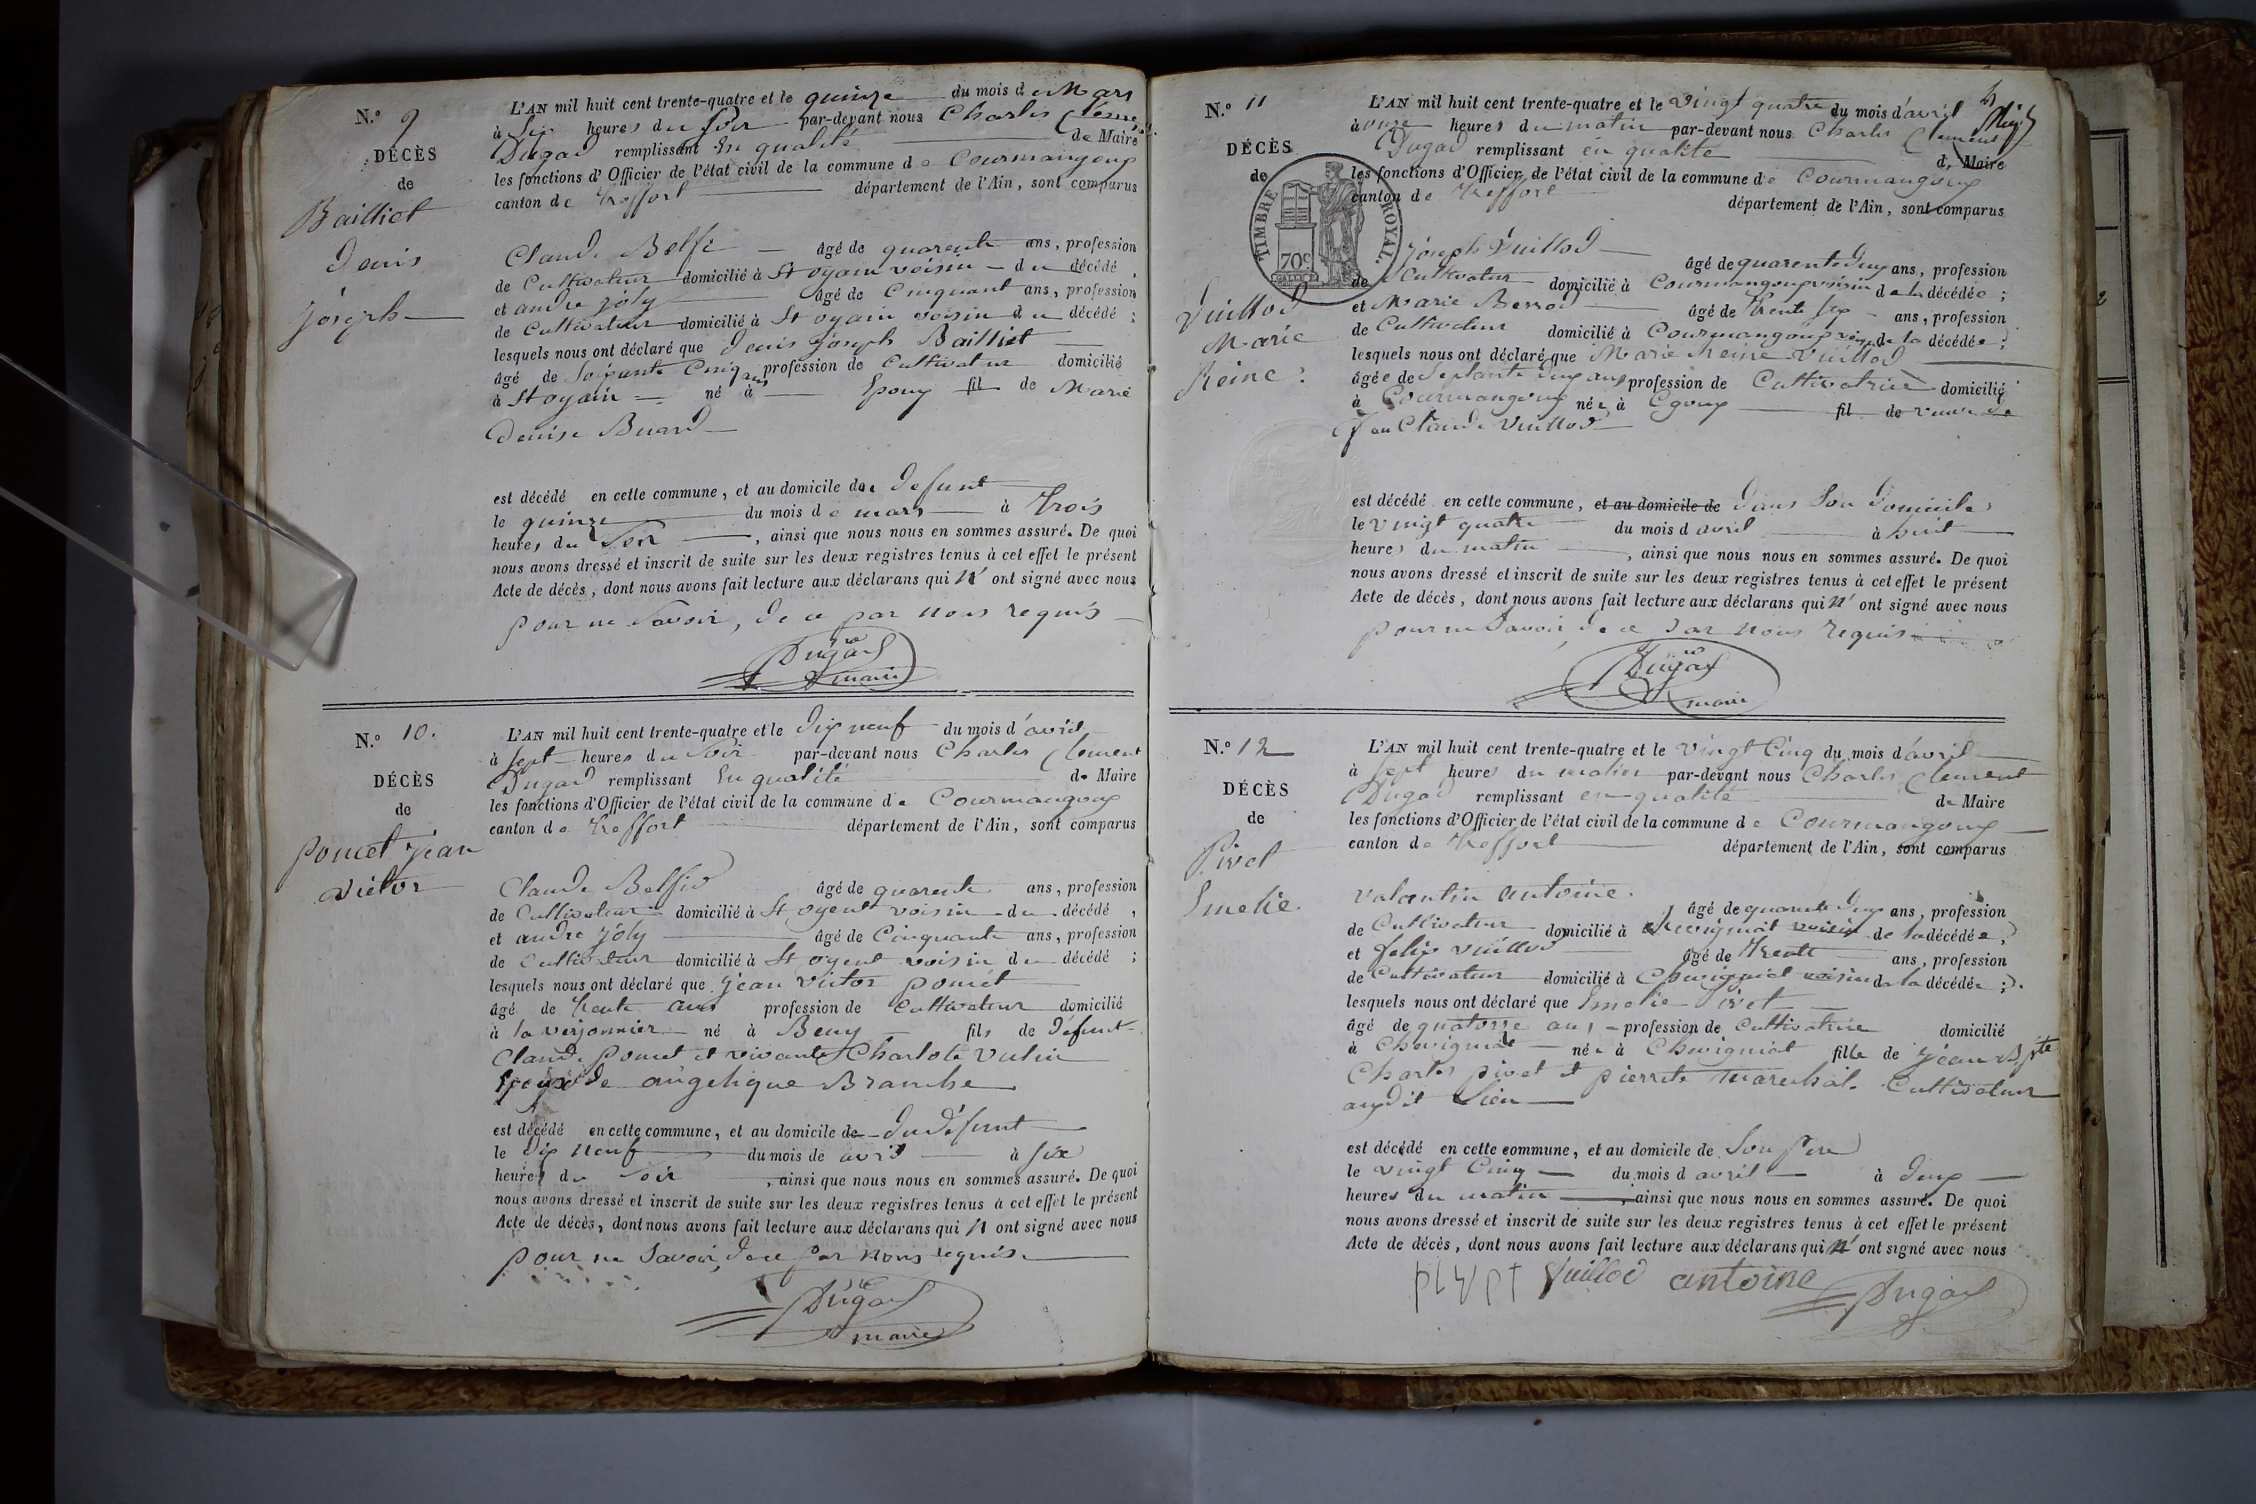 N.o 9
DÉCÈS
de
Bailliet
denis
joseph
L'AN mil huit cent trente-quatre et le quinze du mois de Mars
à six heures du soir par-devant nous Charles Clement
Dugad remplissant En qualité de Maire
les fonctions d'Officier de l'état civil de la commune de Courmangoux
canton de Treffort département de l'Ain, sont comparus
Claude âgé de quarente ans, profession
de Cultivateur domicilié à St oyain voisin du décédé,
et andre joly âgé de Cinquant ans, profession
de Cultivateur domicilié à St oyain voisin du décédé;
lesquels nous ont déclaré que denis joseph Bailliet
âgé de Soixante Cinq ans profession de Cultivateur domicilié
à St oyain né à Epoux fil de Marie
denise Buard
est décédé en cette commune, et au domicile du defunt
le quinze du mois de mars à trois
heures du Soir, ainsi que nous nous en sommes assuré. De quoi
nous avons dressé et inscrit de suite sur les deux registres tenus à cet effet le présent
Acte de décès, dont nous avons fait lecture aux déclarans qui n' ont signé avec nous
pour ne Savoir, de ce par nous requis
Dugad
maire
N.o 10.
DÉCÈS
de
poncet jean
victor
L'AN mil huit cent trente-quatre et le dix neuf du mois d'avril
à sept heures du soir par-devant nous Charles Clement
Dugad remplissant En qualité de Maire
les fonctions d'Officier de l'état civil de la commune de Courmangoux
canton de Treffort département de l'Ain, sont comparus
Claude âgé de quarente ans, profession
de Cultivateur domicilié à St oyent voisin du décédé,
et andre joly âgé de Cinquante ans, profession
de Cultivateur domicilié à St oyent voisin du décédé;
lesquels nous ont déclaré que jean victor poncet
âgé de trente ans profession de Cultivateur domicilié
à la verjonnier né à Beny fils de defunt
Claude poncet et vivante Charlote vuhin
Epoux de angelique Branche
est décédé en cette commune, et au domicile de du defunt
le dix neuf du mois de avril à six
heures du soir, ainsi que nous nous en sommes assuré. De quoi
nous avons dressé et inscrit de suite sur les deux registres tenus à cet effet le présent
Acte de décès, dont nous avons fait lecture aux déclarans qui n ont signé avec nous
pour ne Savoir, de ce par nous requis
Dugad
maire
N.o 11
DÉCÈS
de
TIMBRE ROYAL.
70c
Vuillod
Marie
Reine
L'AN mil huit cent trente-quatre et le vingt quatre du mois d'avril
à onze heures du matin par-devant nous Charles Clement
Dugad remplissant en qualité d. Maire
les fonctions d'Officier de l'état civil de la commune de Courmangoux
canton de Treffort département de l'Ain, sont comparus
joseph Vuillod âgé de quarente deux ans, profession
de Cultivateur domicilié à Courmangoux voisin de la décédée;
et Marie Berrod âgé de trente six ans, profession
de Cultivateur domicilié à Courmangoux de la décédée;
lesquels nous ont déclaré que Marie Reine Vuillod
âgée de Septante deux ans profession de Cultivatrice domicilié
à Courmangoux née à Egoux fil de veuve de
jean Claude Vuillod
est décédé en cette commune, et au domicile de dans Son domicile
le vingt quatre du mois d avril à huit
heures du matin, ainsi que nous nous en sommes assuré. De quoi
nous avons dressé et inscrit de suite sur les deux registres tenus à cet effet le présent
Acte de décès, dont nous avons fait lecture aux déclarans qui n' ont signé avec nous
pour ne Savoir, de ce par nous requis
Dugad
maire
N.o 12
DÉCÈS
de
Pivet
Emelie.
L'AN mil huit cent trente-quatre et le vingt Cinq du mois d'avril
à sept heures du matin par-devant nous Charles Clement
Dugad remplissant en qualité de Maire
les fonctions d'Officier de l'état civil de la commune de Courmangoux
canton de Treffort département de l'Ain, sont comparus
valentin antoine. âgé de quarante deux ans, profession
de Cultivateur domicilié à Chevigniat voisin de la décédée,
et felix vuillod âgé de trente ans, profession
de Cultivateur domicilié à Chevigniat voisin de la décédée;
lesquels nous ont déclaré que Emelie Pivet
âgé de quatorze ans profession de Cultivatrice domicilié
à Chevigniat née à Chevigniat fille de jean Bpte
Charles pivet et pierrete Marechal Cultivateur
audit lieu
est décédé en cette commune, et au domicile de Son Pere
le vingt Cinq du mois d avril à deux
heures du matin, ainsi que nous nous en sommes assuré. De quoi
nous avons dressé et inscrit de suite sur les deux registres tenus à cet effet le présent
Acte de décès, dont nous avons fait lecture aux déclarans qui n' ont signé avec nous
Vuillod antoine Dugad